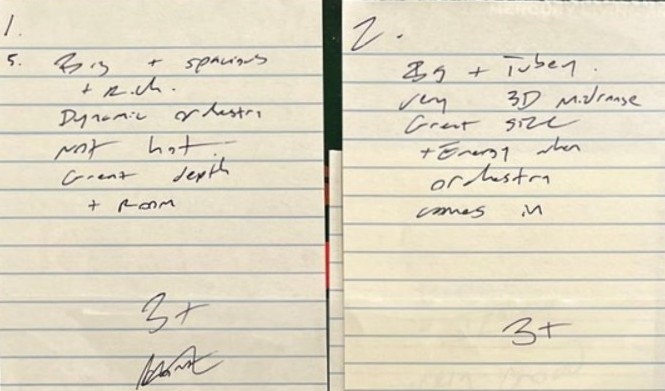 1.
5. Big + spacious
+ Rich.
Dynamic orchestra
Not hot.
Great depth
+ Room
3+
2.
Big + Tubey.
very 3D midrange
Great size
+ Energy when
orchestra
comes in
3+